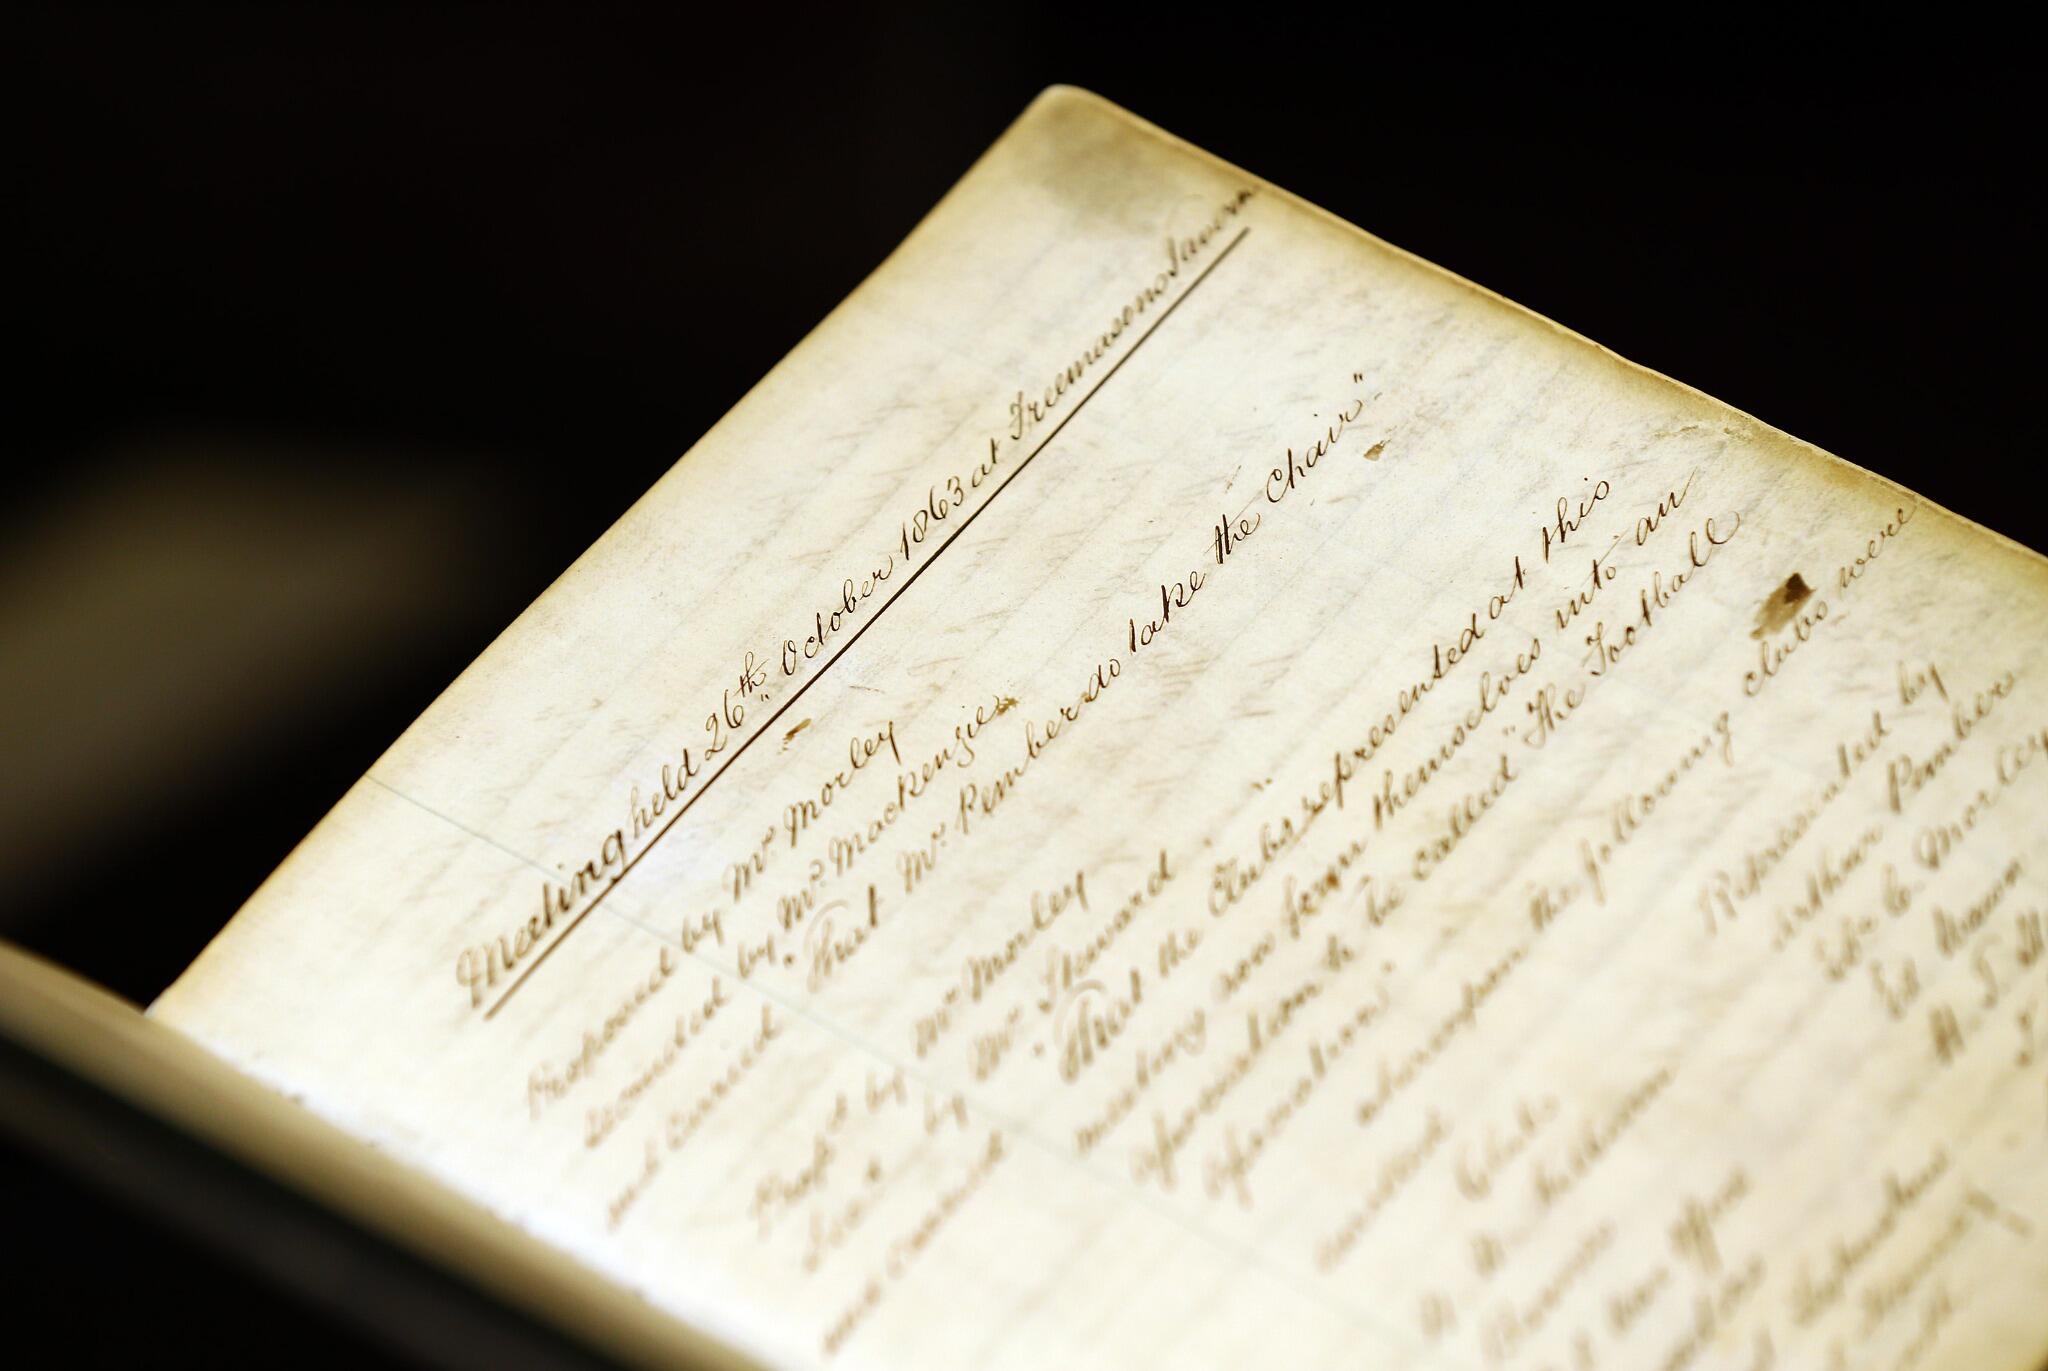 Meeting held 26th October 1863 at Freemasons Tavern
Proposed by Mr. Morley
Seconded by Mr. Mackenzie
and Carried "That Mr. Pember do take the Chair".
Prop.d by Mr. Morley
Sec.d by Mr. Steward
and Carried "That the Clubs represented at this
meeting now form themselves into an
association to be called "The Football
Association"
whereupon the following clubs were
enrolled
Clubs. Represented by
Arthur Pember
E. C. Morley
War Office